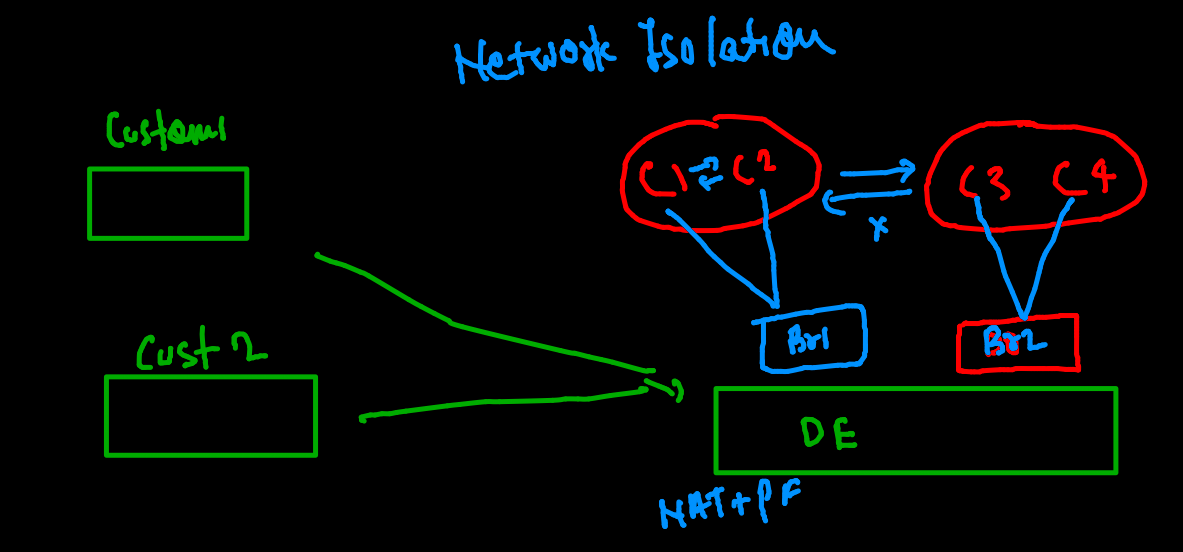 Network Isolation
Custom1
C1 C2
C3 C4
x
Cust 2
Br1
Br2
DE
NAT+PF